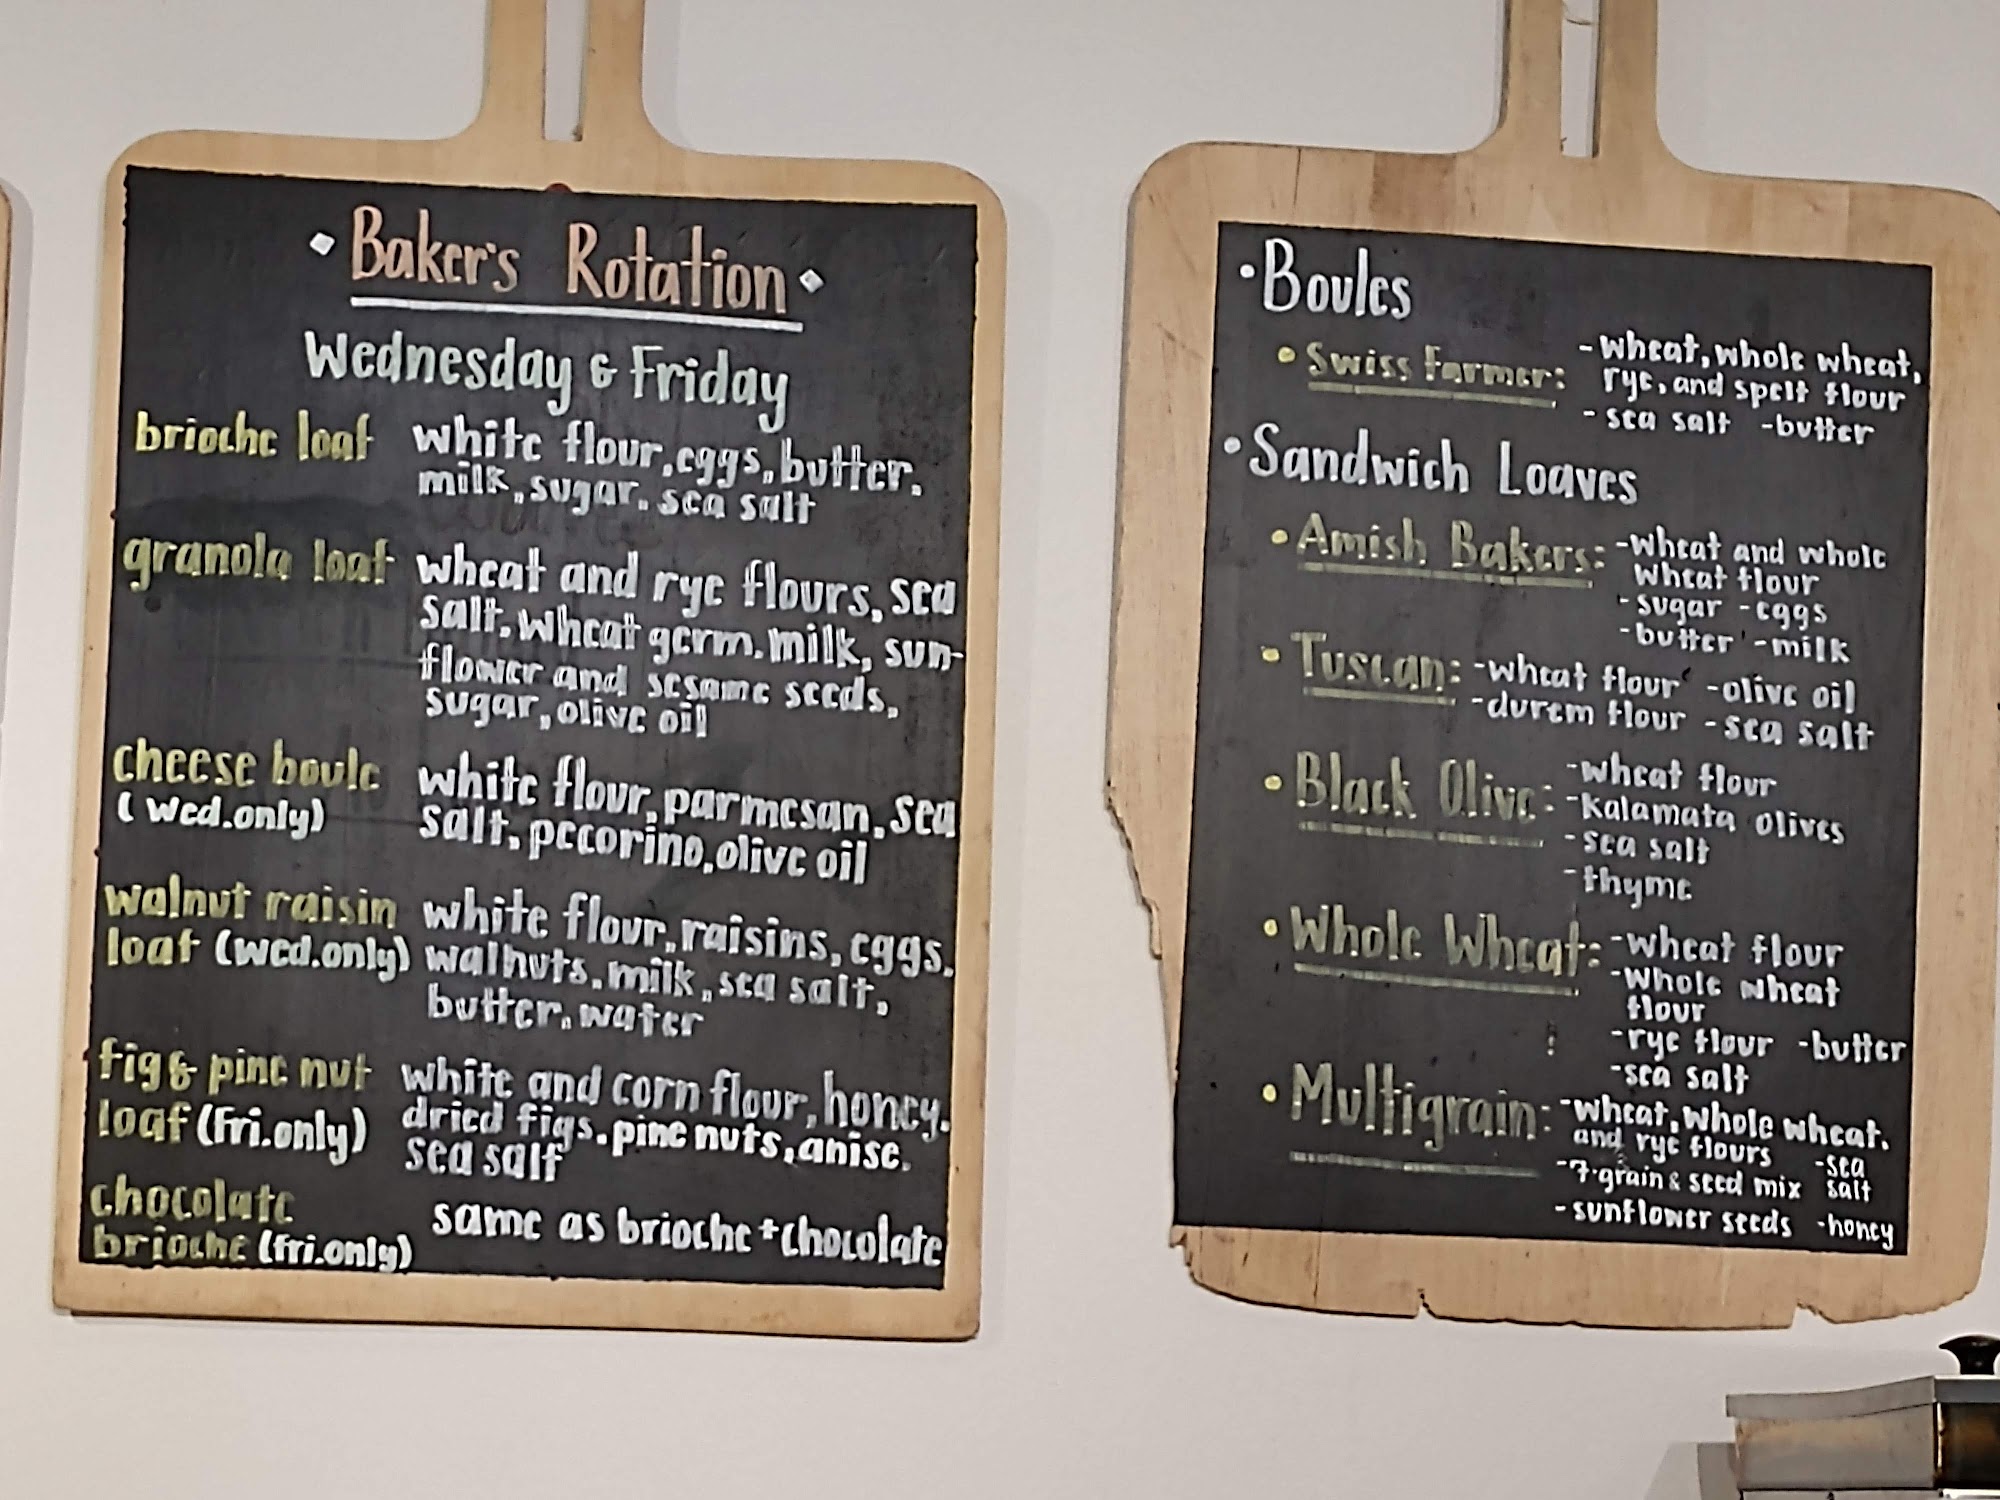 Baker's Rotation
Wednesday & Friday
brioche loaf white flour, eggs, butter,
milk, sugar, sea salt
granola loaf wheat and rye flours, sea
salt, wheat germ, milk, sun-
flower and sesame seeds,
sugar, olive oil
cheese boule white flour, parmesan, sea
(wed.only) salt, pecorino, olive oil
walnut raisin white flour, raisins, eggs,
loaf (wed.only) walnuts, milk, sea salt,
butter, water
fig & pine nut white and corn flour, honey,
loaf (fri.only) dried figs, pine nuts, anise,
sea salt
chocolate same as brioche + chocolate
brioche (fri.only)
• Boules
• Swiss Farmer: - wheat, whole wheat,
rye, and spelt flour
- sea salt - butter
• Sandwich Loaves
• Amish Bakers: - wheat and whole
wheat flour
- sugar - eggs
- butter - milk
• Tuscan: - wheat flour - olive oil
- durem flour - sea salt
• Black Olive: - wheat flour
- kalamata olives
- sea salt
- thyme
• Whole Wheat: - wheat flour
- whole wheat
flour
- rye flour - butter
- sea salt
• Multigrain: - wheat, whole wheat,
and rye flours - sea
- 7-grain & seed mix salt
- sunflower seeds - honey